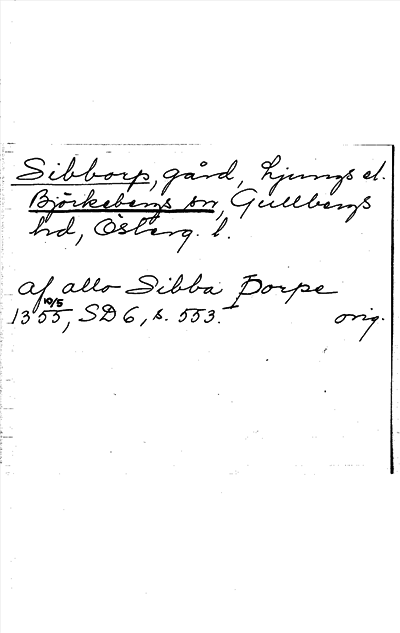 Sibborp, gård, Ljungs el.
Björkebergs sn, Gullbergs
hd, Österg. l.
af allo Sibba Þorpe
13 10/5 55, SD 6, s. 553.
orig.